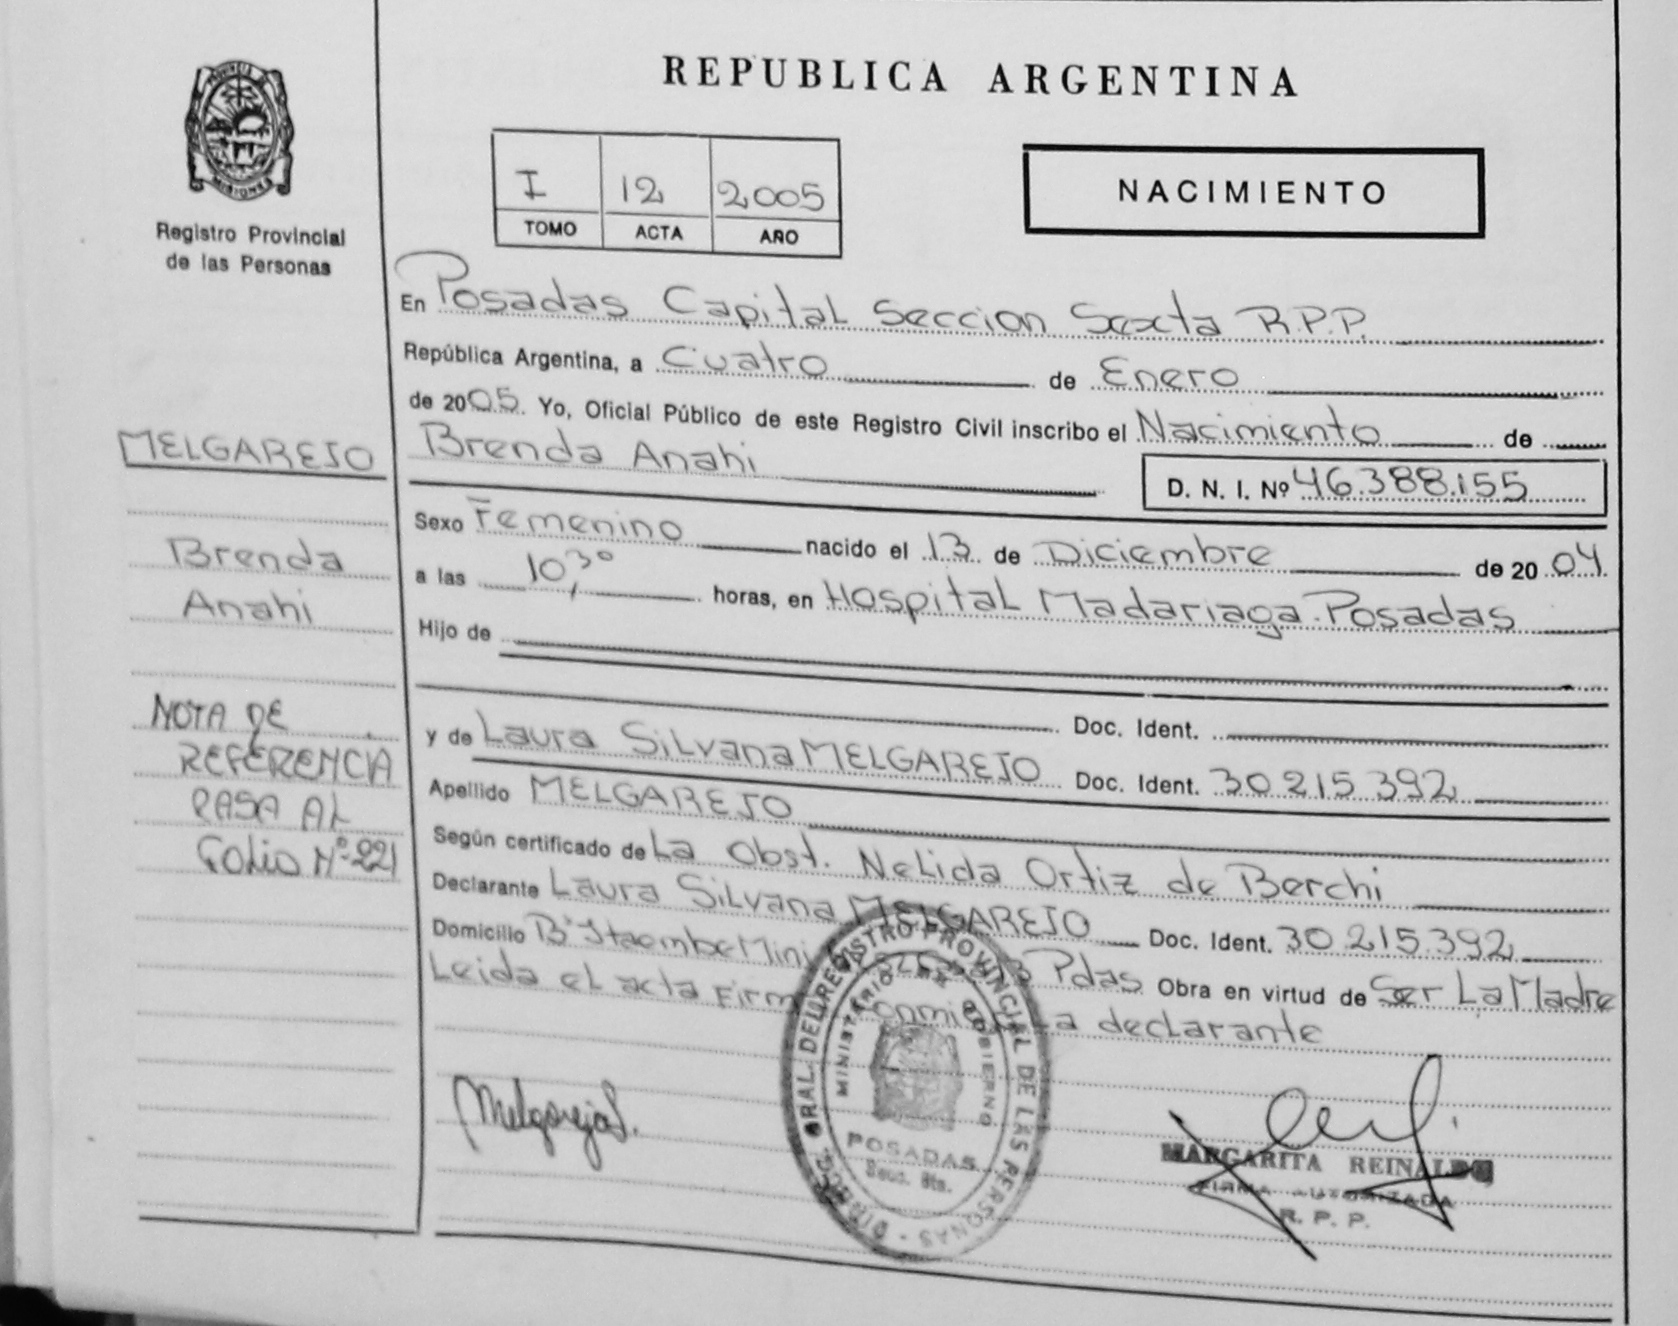 REPUBLICA ARGENTINA
PROVINCIA DE MISIONES
Registro Provincial
de las Personas
I 12 2005
TOMO ACTA AÑO
NACIMIENTO
En Posadas Capital Seccion Sexta R.P.P.
República Argentina, a Cuatro de Enero
de 2005. Yo, Oficial Público de este Registro Civil inscribo el Nacimiento de
Brenda Anahi
D. N. I. Nº 46.388.155
Sexo Femenino nacido el 13 de Diciembre de 2004
a las 10,30 horas, en Hospital Madariaga. Posadas
Hijo de
Doc. Ident.
y de Laura Silvana MELGAREJO Doc. Ident. 30.215.392
Apellido MELGAREJO
Según certificado de La Obst. Nelida Ortiz de Berchi
Declarante Laura Silvana MELGAREJO Doc. Ident. 30.215.392
Domicilio Bº Mini Pdas Obra en virtud de Ser La Madre
Leida el acta Firm conmigo La declarante
MELGAREJO
Brenda
Anahi
NOTA DE
REFERENCIA
PASA AL
FOLIO Nº 221
Melgarejo S.
GRAL. DEL REGISTRO PROVINCIAL DE LAS PERSONAS
MINISTERIO DE GOBIERNO
POSADAS
Secc. 6ta.
MARGARITA REINALDO
FIRMA AUTORIZADA
R. P. P.